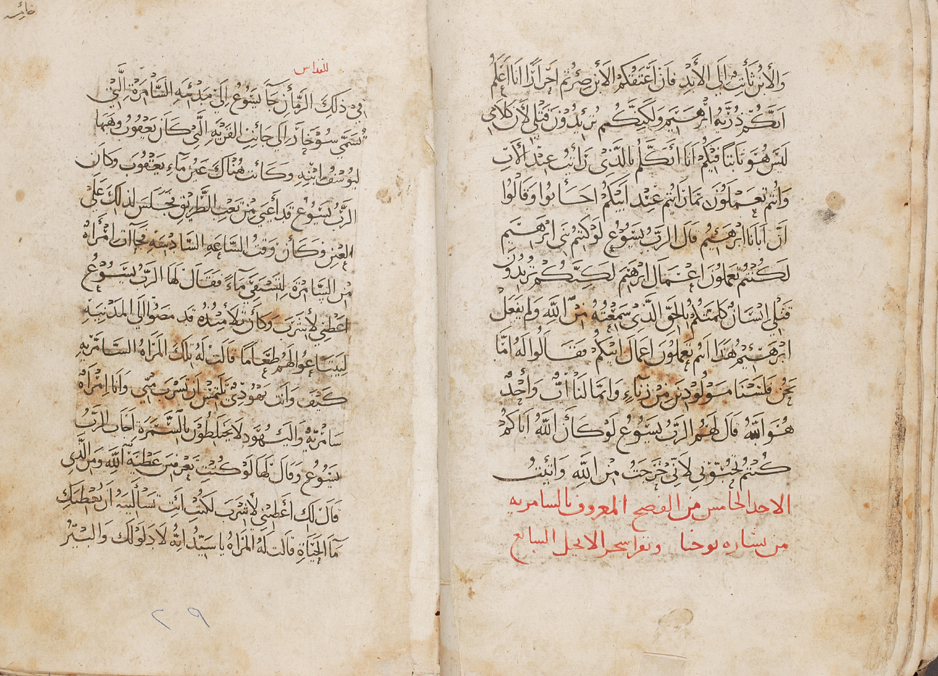 والابن ثابت الى الابد فان اعتقكم الابن صرتم احرارا انا اعلم
انكم ذرية ابرهيم ولكنكم تريدون قتلي لان كلامي
ليس هو ثابتا فيكم انا اتكلم بالذي رايت عند الاب
وانتم تعملون بما رايتم عند ابيكم اجابوا وقالوا
ان ابانا ابرهيم قال الرب يسوع لو كنتم بني ابرهيم
لكنتم تعملون اعمال ابرهيم لكنكم تريدون
قتل انسان كلمتكم بالحق الذي سمعته من الله ولم يفعل
ابرهيم هذا انتم تعملون اعمال ابيكم فقالوا له اما
نحن فلسنا مولودين من زناء وانما لنا اب واحد
هو الله قال لهم الرب يسوع لو كان الله اباكم
كنتم تحبوني لاني خرجت من الله واتيت
الاحد الخامس من الفصح المعروف بالسامريه
من بشاره يوحنا السابع
خامس
للقداس
في ذلك الزمان جا يسوع الى مدينه السامرة التي
تسمى سوخار الى جانب القريه التي كان يعقوب وهبها
ليوسف ابنه وكانت هناك عين ماء يعقوب وكان
الرب يسوع قد اعيى من تعب الطريق فجلس لذلك على
العين وكان وقت الساعه السادسه فجاات امراة
من السامرة لتستقى ماء فقال لها الرب يسوع
اعطيني لاشرب وكان تلاميذه قد مضوا الى المدينه
ليبتاعوا لهم طعاما قالت له تلك المراة السامريه
كيف وانت يهودي تلتمس ان تشرب مني وانا امراة
سامريه واليهود لا يختلطون بالسمرة اجاب الرب
يسوع وقال لها لو كنت تعرفين عطية الله ومن الذي
قال لك اعطيني لاشرب لكنت انت سالتيه ان يعطيك
ما الحياة قالت له المراة يا سيد انه لا دلو لك والبير
٢٩